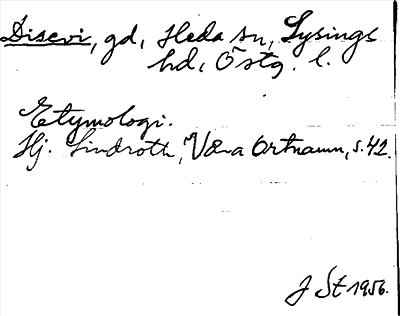 Disevi, gd, Heda sn, Lysings
hd, Östg. l.
Etymologi.
Hj. Lindroth, Våra Ortnamn, s. 42.
J St 1956.